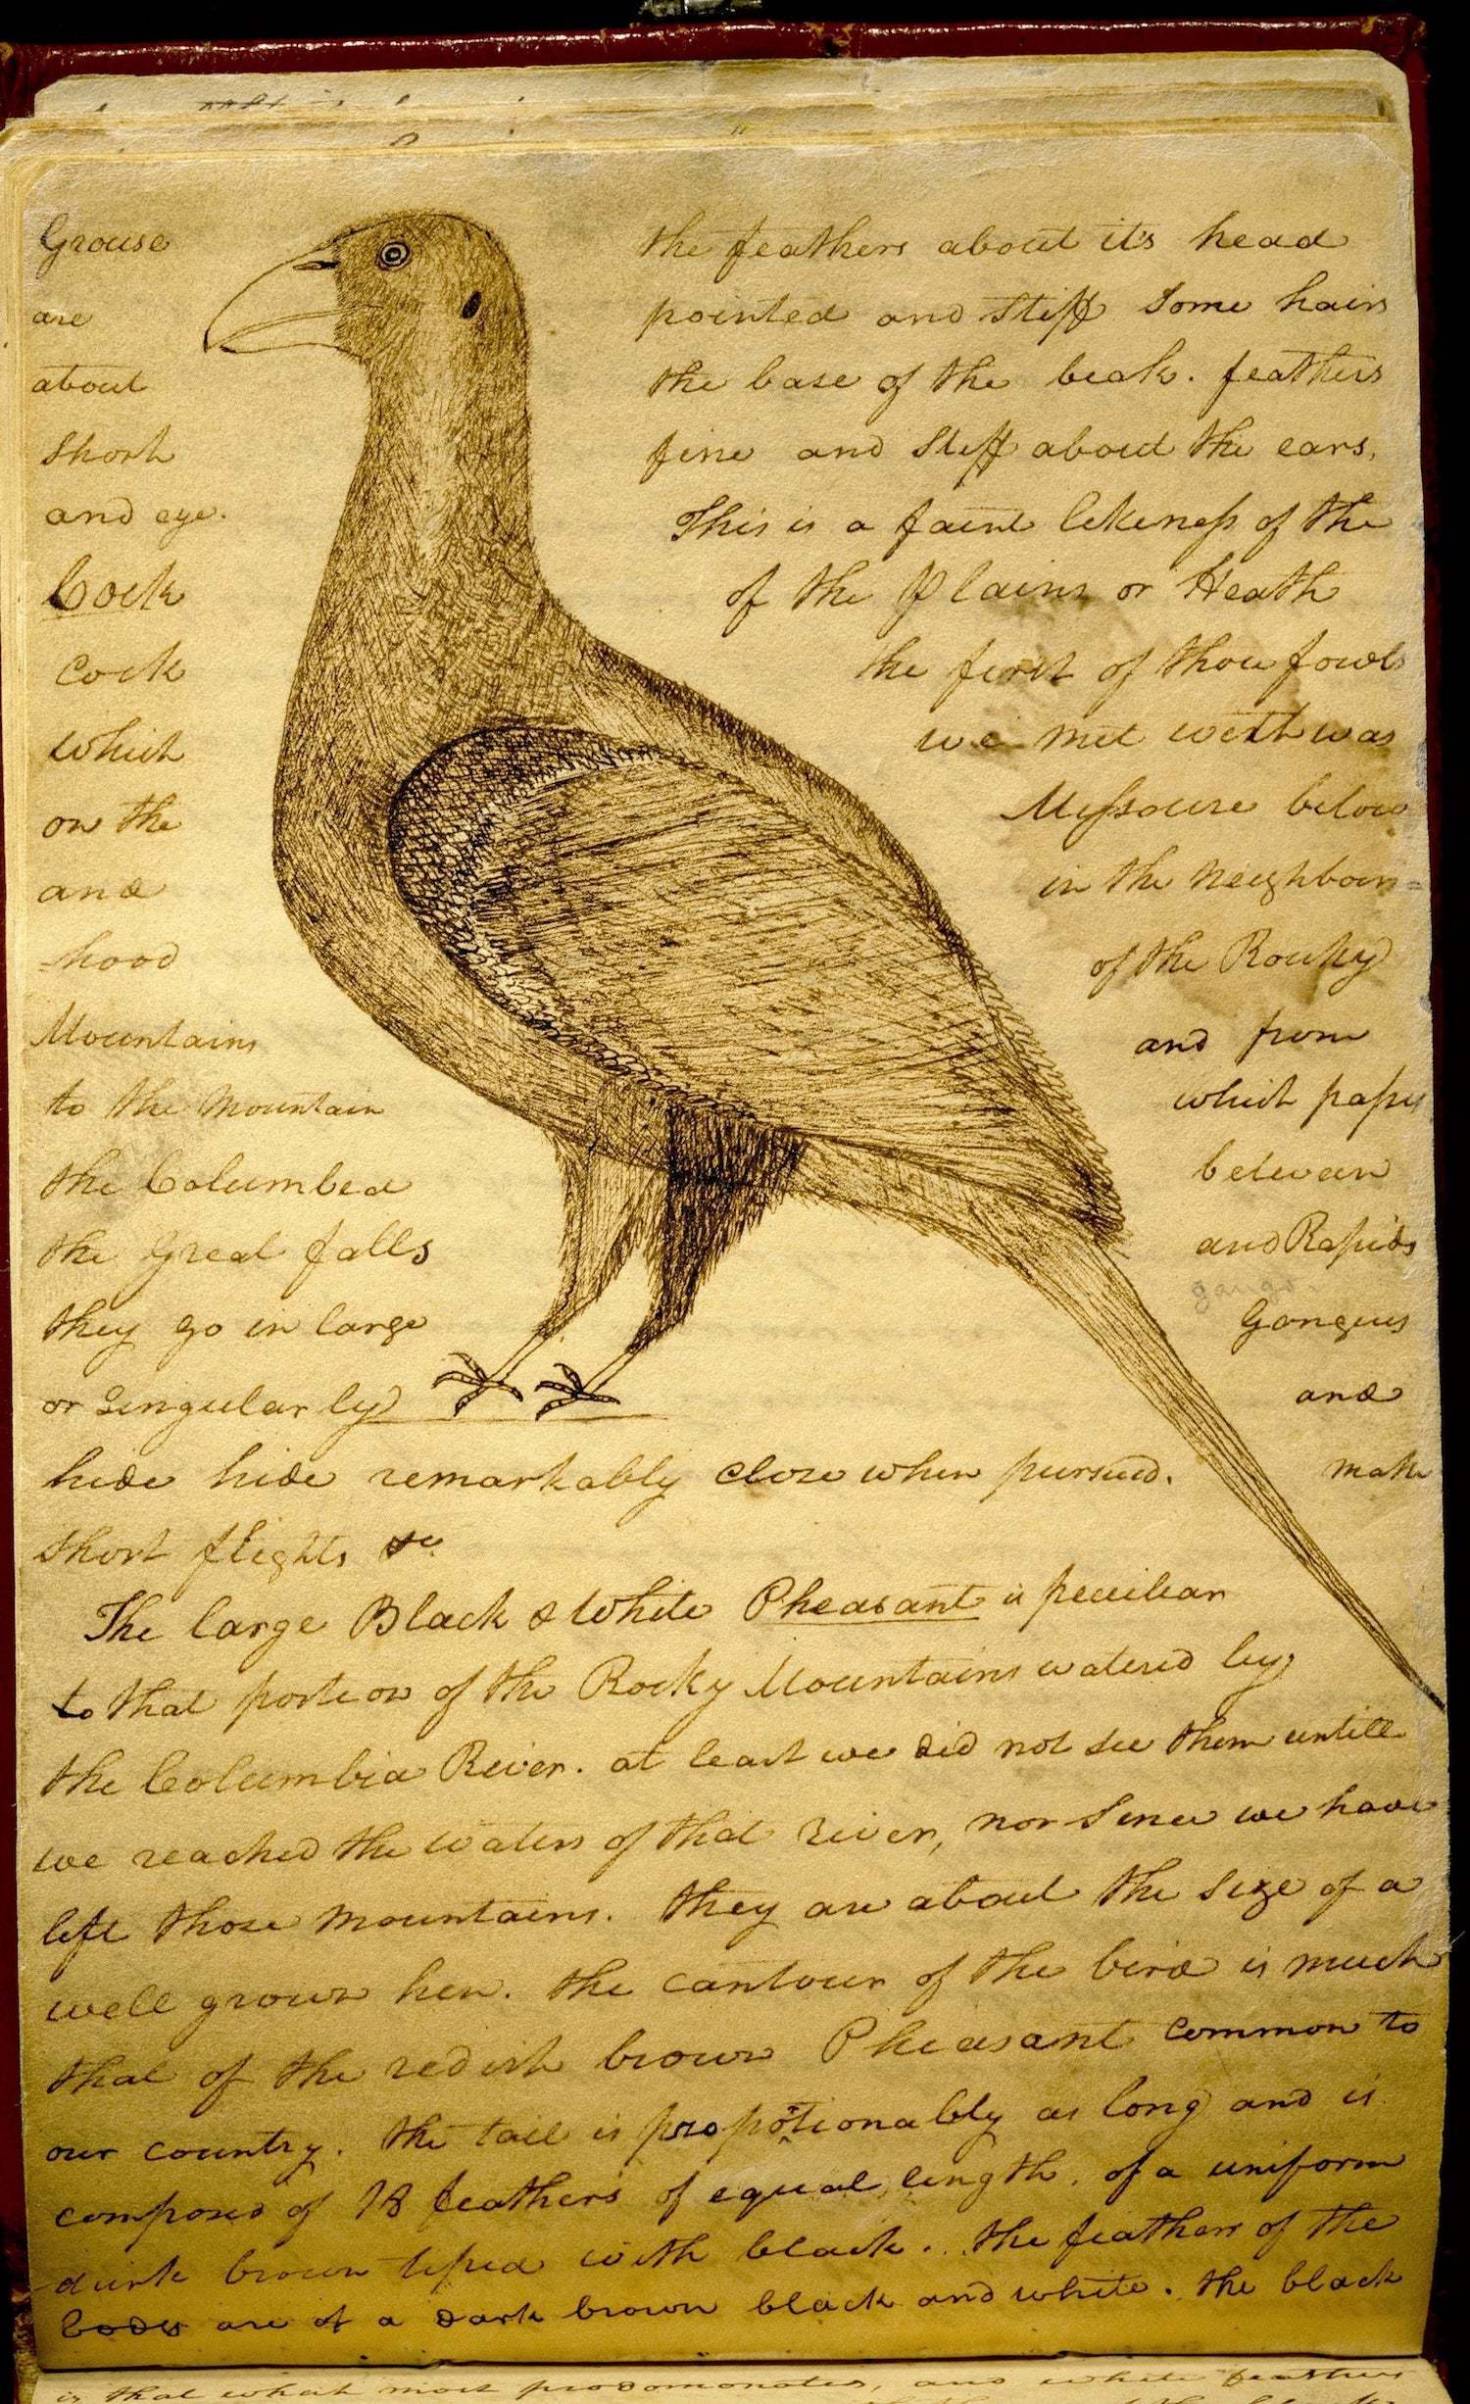 Grouse the feathers about it's head
are pointed and stiff Some hairs
about the base of the beak. feathers
Short fine and stiff about the ears,
and eye. This is a faint likeness of the
Cock of the Plains or Heath
Cock the first of those fowls
which we met with was
on the Missourie below
and in the neighbour=
=hood of the Rocky
Mountains and from
to the mountain which pass
the Columbia between
the Great falls and Rapids
they go in large Gangues
or Singularly and
hide hide remarkably close when pursued. make
Short flights &c
The large Black & White Pheasant is peculiar
to that portion of the Rocky Mountains watered by
the Columbia River. at least we did not see them untill
we reached the waters of that river, nor Since we have
left those mountains. they are about the Size of a
well grown hen. the contour of the bird is much
that of the redish brown Pheasant common to
our country. the tail is propotionably as long and is
composed of 18 feathers of equal length, of a uniform
dark brown tiped with black. the feathers of the
body are of a dark brown black and white. the black
is that which most prodomonates, and white feathers